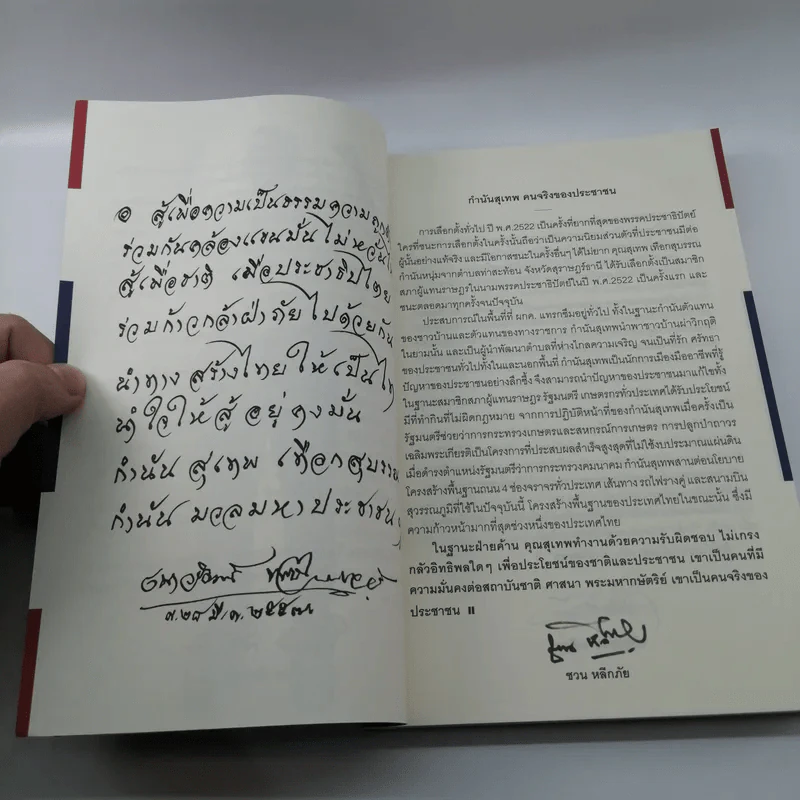 ๏ สู้เพื่อความเป็นธรรมความถูก
ร่วมกันคล้องแขนมั่นไม่หวั่นไ
สู้เพื่อชาติ เมื่อประชาธิปไตย
ร่วมก้าวกล้าฝ่าภัยไปด้วยกัน
นำทาง สร้างไทยให้เป็นไท
นำใจให้สู้ อยู่คงมั่น
กำนัน สุเทพ เทือกสุบรรณ
กำนัน มวลมหาประชาชน
๒๕๕๗
กำนันสุเทพ คนจริงของประชาชน
การเลือกตั้งทั่วไป ปี พ.ศ.2522 เป็นครั้งที่ยากที่สุดของพรรคประชาธิปัตย์
ใครที่ชนะการเลือกตั้งในครั้งนั้นถือว่าเป็นความนิยมส่วนตัวที่ประชาชนมีต่อ
ผู้นั้นอย่างแท้จริง และมีโอกาสชนะในครั้งอื่นๆ ได้ไม่ยาก คุณสุเทพ เทือกสุบรรณ
กำนันหนุ่มจากตำบลท่าสะท้อน จังหวัดสุราษฎร์ธานี ได้รับเลือกตั้งเป็นสมาชิก
สภาผู้แทนราษฎรในนามพรรคประชาธิปัตย์ในปี พ.ศ.2522 เป็นครั้งแรก และ
ชนะตลอดมาทุกครั้งจนปัจจุบัน
ประสบการณ์ในพื้นที่ที่ ผกค. แทรกซึมอยู่ทั่วไป ทั้งในฐานะกำนันตัวแทน
ของชาวบ้านและตัวแทนของทางราชการ กำนันสุเทพนำพาชาวบ้านผ่าวิกฤติ
ในยามนั้น และเป็นผู้นำพัฒนาตำบลที่ห่างไกลความเจริญ จนเป็นที่รัก ศรัทธา
ของประชาชนทั่วไปทั้งในและนอกพื้นที่ กำนันสุเทพเป็นนักการเมืองมืออาชีพที่รู้
ปัญหาของประชาชนอย่างลึกซึ้ง จึงสามารถนำปัญหาของประชาชนมาแก้ไขทั้ง
ในฐานะสมาชิกสภาผู้แทนราษฎร รัฐมนตรี เกษตรกรทั่วประเทศได้รับประโยชน์
มีที่ทำกินที่ไม่ผิดกฎหมาย จากการปฏิบัติหน้าที่ของกำนันสุเทพเมื่อครั้งเป็น
รัฐมนตรีช่วยว่าการกระทรวงเกษตรและสหกรณ์การเกษตร การปลูกป่าถาวร
เฉลิมพระเกียรติเป็นโครงการที่ประสบผลสำเร็จสูงสุดที่ไม่ใช้งบประมาณแผ่นดิน
เมื่อดำรงตำแหน่งรัฐมนตรีว่าการกระทรวงคมนาคม กำนันสุเทพสานต่อนโยบาย
โครงสร้างพื้นฐานถนน 4 ช่องจราจรทั่วประเทศ เส้นทาง รถไฟรางคู่ และสนามบิน
สุวรรณภูมิที่ใช้ในปัจจุบันนี้ โครงสร้างพื้นฐานของประเทศไทยในขณะนั้น ซึ่งมี
ความก้าวหน้ามากที่สุดช่วงหนึ่งของประเทศไทย
ในฐานะฝ่ายค้าน คุณสุเทพทำงานด้วยความรับผิดชอบ ไม่เกรง
กลัวอิทธิพลใดๆ เพื่อประโยชน์ของชาติและประชาชน เขาเป็นคนที่มี
ความมั่นคงต่อสถาบันชาติ ศาสนา พระมหากษัตริย์ เขาเป็นคนจริงของ
ประชาชน
ชวน หลีกภัย